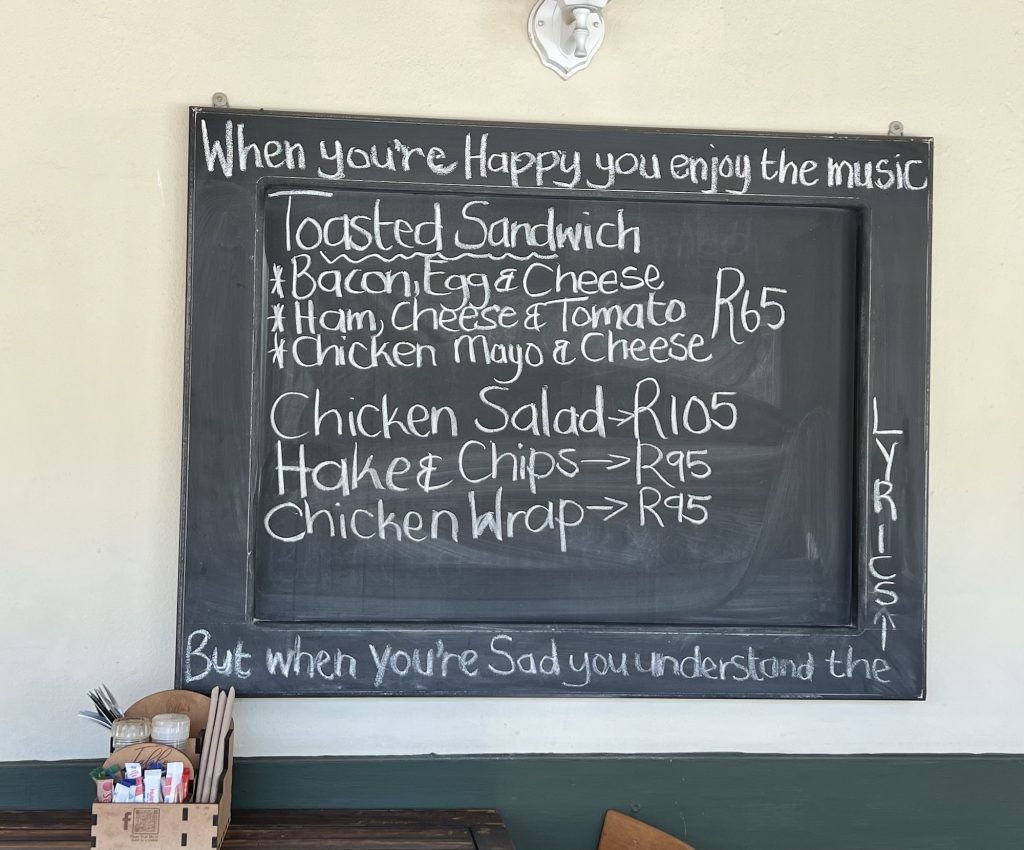 When you're Happy you enjoy the music
Toasted Sandwich
* Bacon, Egg & Cheese
* Ham, Cheese & Tomato R65
* Chicken Mayo & Cheese
Chicken Salad → R105
Hake & Chips → R95
Chicken Wrap → R95
But when you're Sad you understand the
LYRICS